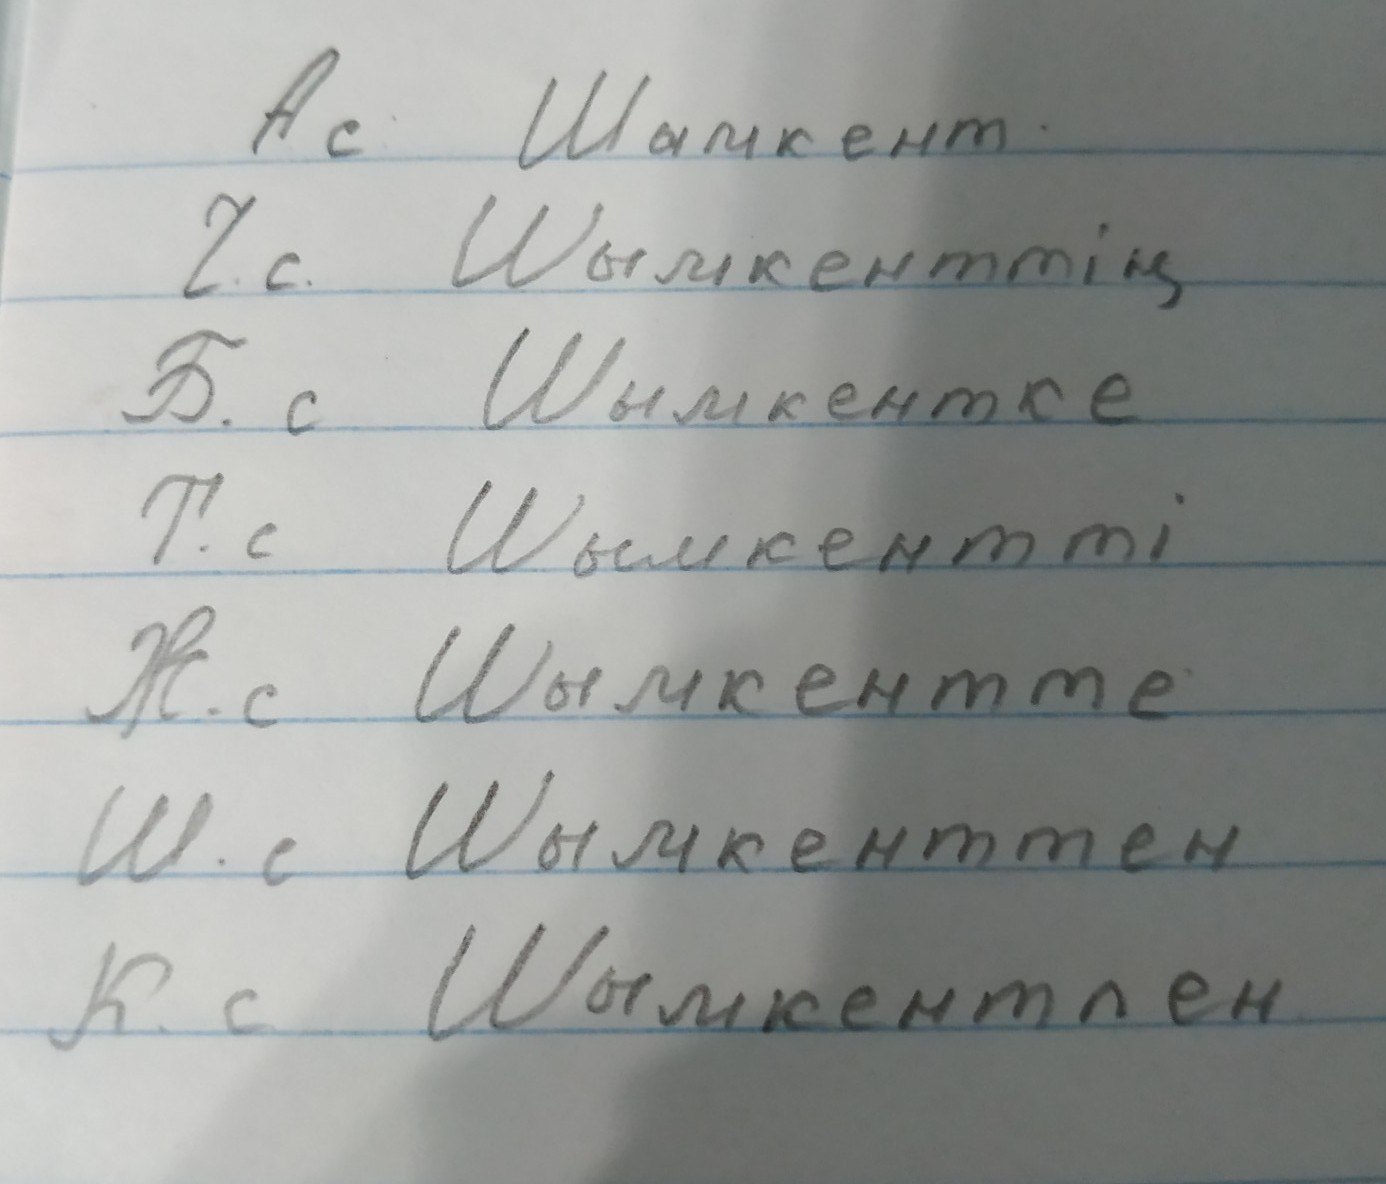 А с. Шымкент.
І. с. Шымкенттің
Б. с Шымкентке
Т. с Шымкентті
Ж. с Шымкентте
Ш. с Шымкенттен
К. с Шымкентпен